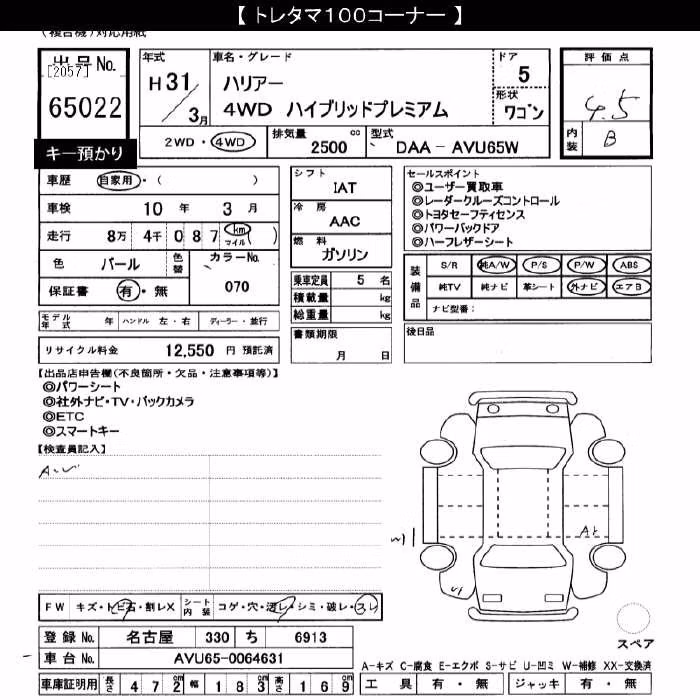 【 トレタマ100コーナー 】
(複合機)対応用紙
出品No.
[2057]
65022
キー預かり
年式
H 31 / 3月
車名・グレード
ハリアー
4WD ハイブリッドプレミアム
ドア
5
形状
ワゴン
評価点
4.5
内装 B
2WD・4WD
排気量 2500 cc
型式 DAA - AVU65W
車歴 自家用・( )
車検 10 年 3 月
走行 8万 4千 0 8 7 km マイル ( )
色 パール 色替
カラーNo. 070
保証書 有・無
シフト
IAT
冷房
AAC
燃料
ガソリン
乗車定員 5 名
積載量 kg
総重量 kg
書類期限
月 日
セールスポイント
◎ユーザー買取車
◎レーダークルーズコントロール
◎トヨタセーフティセンス
◎パワーバックドア
◎ハーフレザーシート
装備品
S/R 純A/W P/S P/W ABS
純TV 純ナビ 革シート 外ナビ エアB
ナビ型番：
後日品
モデル年式 年 ハンドル 左・右 ディーラー・並行
リサイクル料金 12,550 円 預託済
【出品店申告欄(不良箇所・欠品・注意事項等)】
◎パワーシート
◎社外ナビ・TV・バックカメラ
◎ETC
◎スマートキー
【検査員記入】
A-U
W1
A1
U1
FW キズ・トビ石・割レX シート内装 コゲ・穴・汚レ・シミ・破レ・スレ
登録No. 名古屋 330 ち 6913
車台No. AVU65-0064631
車庫証明用 長さ 4 7 2 cm 幅 1 8 3 cm 高さ 1 6 9 cm
スペア
A-キズ C-腐食 E-エクボ S-サビ U-凹ミ W-補修 XX-交換済
工具 有・無 ジャッキ 有・無